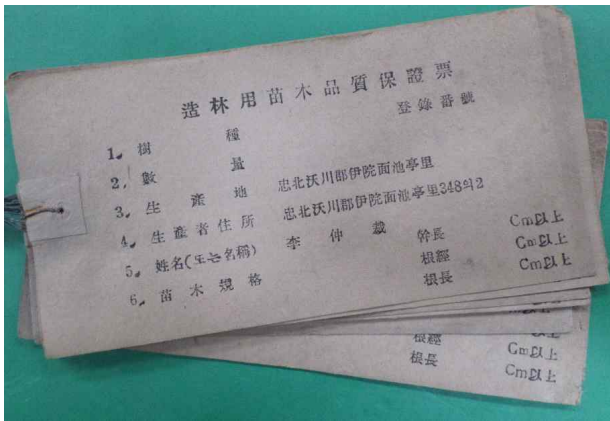 造林用苗木品質保證票
登錄番號
1. 樹種
2. 數量
3. 生產地 忠北沃川郡伊院面池亭里
4. 生產者住所 忠北沃川郡伊院面池亭里348의2
5. 姓名(또는名稱) 李仲裁
6. 苗木規格 幹長 Cm以上
根經 Cm以上
根長 Cm以上
根經 Cm以上
根長 Cm以上